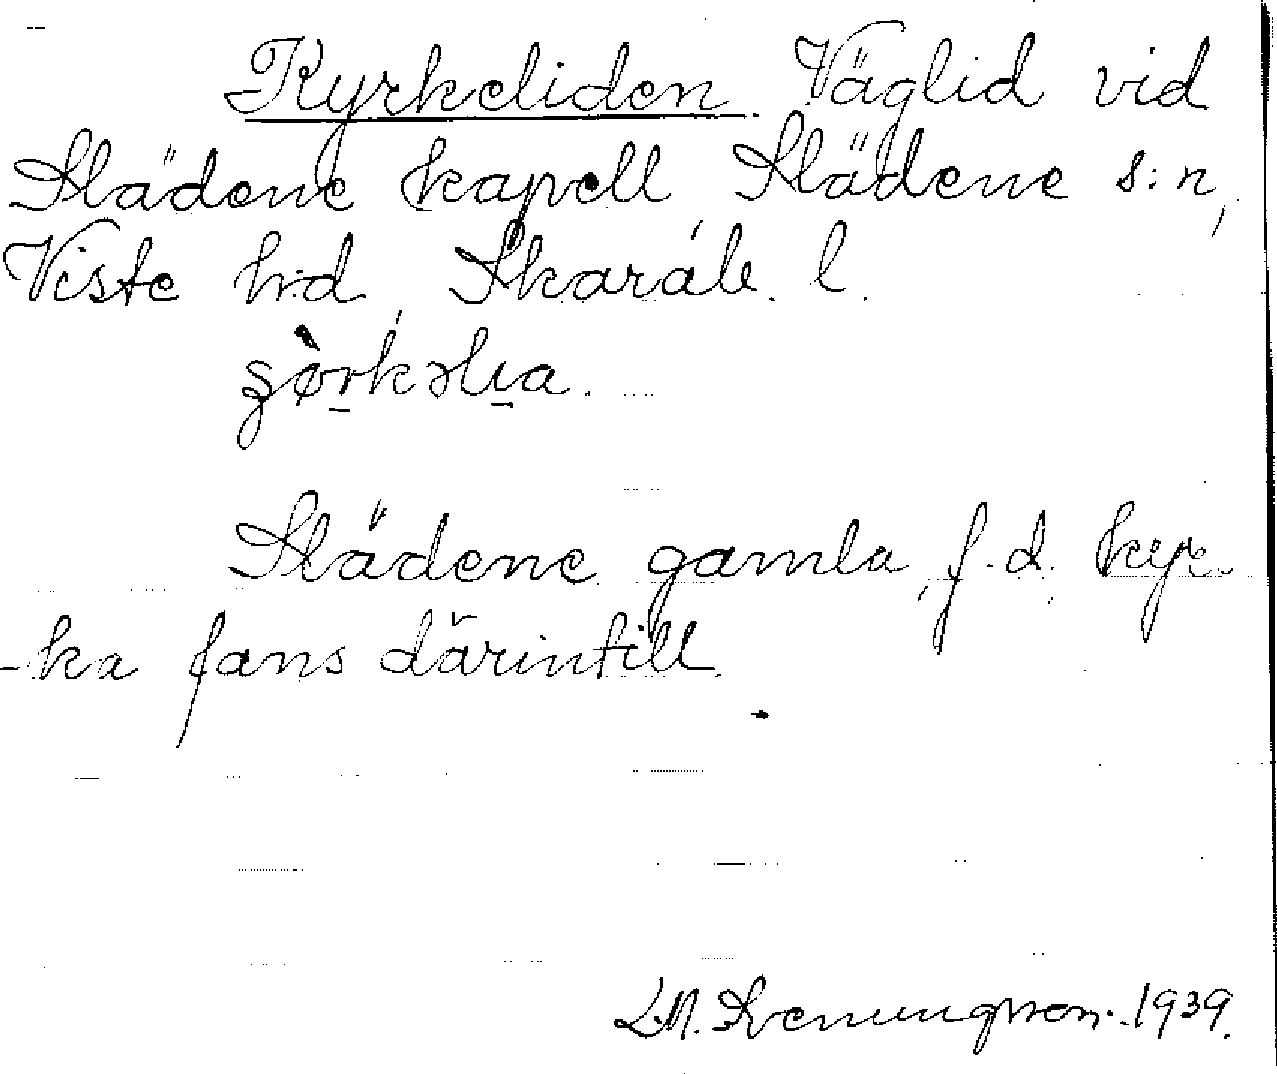 Kyrkeliden Väglid vid
Slädene kapell Slädene s:n,
Viste h:d, Skarab. l.
Slädene gamla, f.d. kyr-
-ka fans därintill.
L.M. Svenungsson. 1939.